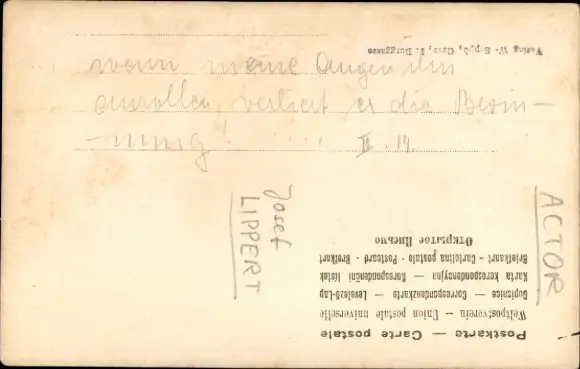 wenn meine Augen ihn
anrollen, verliert er die Besin-
nung! .... II. 14.
Josef
LIPPERT
ACTOR
Postkarte — Carte postale
Weltpostverein — Union postale universelle
Dopisnice — Correspondenzkarte — Levelező-Lap
Karta korespondencyjna — Korespondenční lístek
Briefkaart - Cartolina postale - Postcard - Brefkort
Открытое Письмо
Verlag W. Seppö, Graz, F. Burggasse